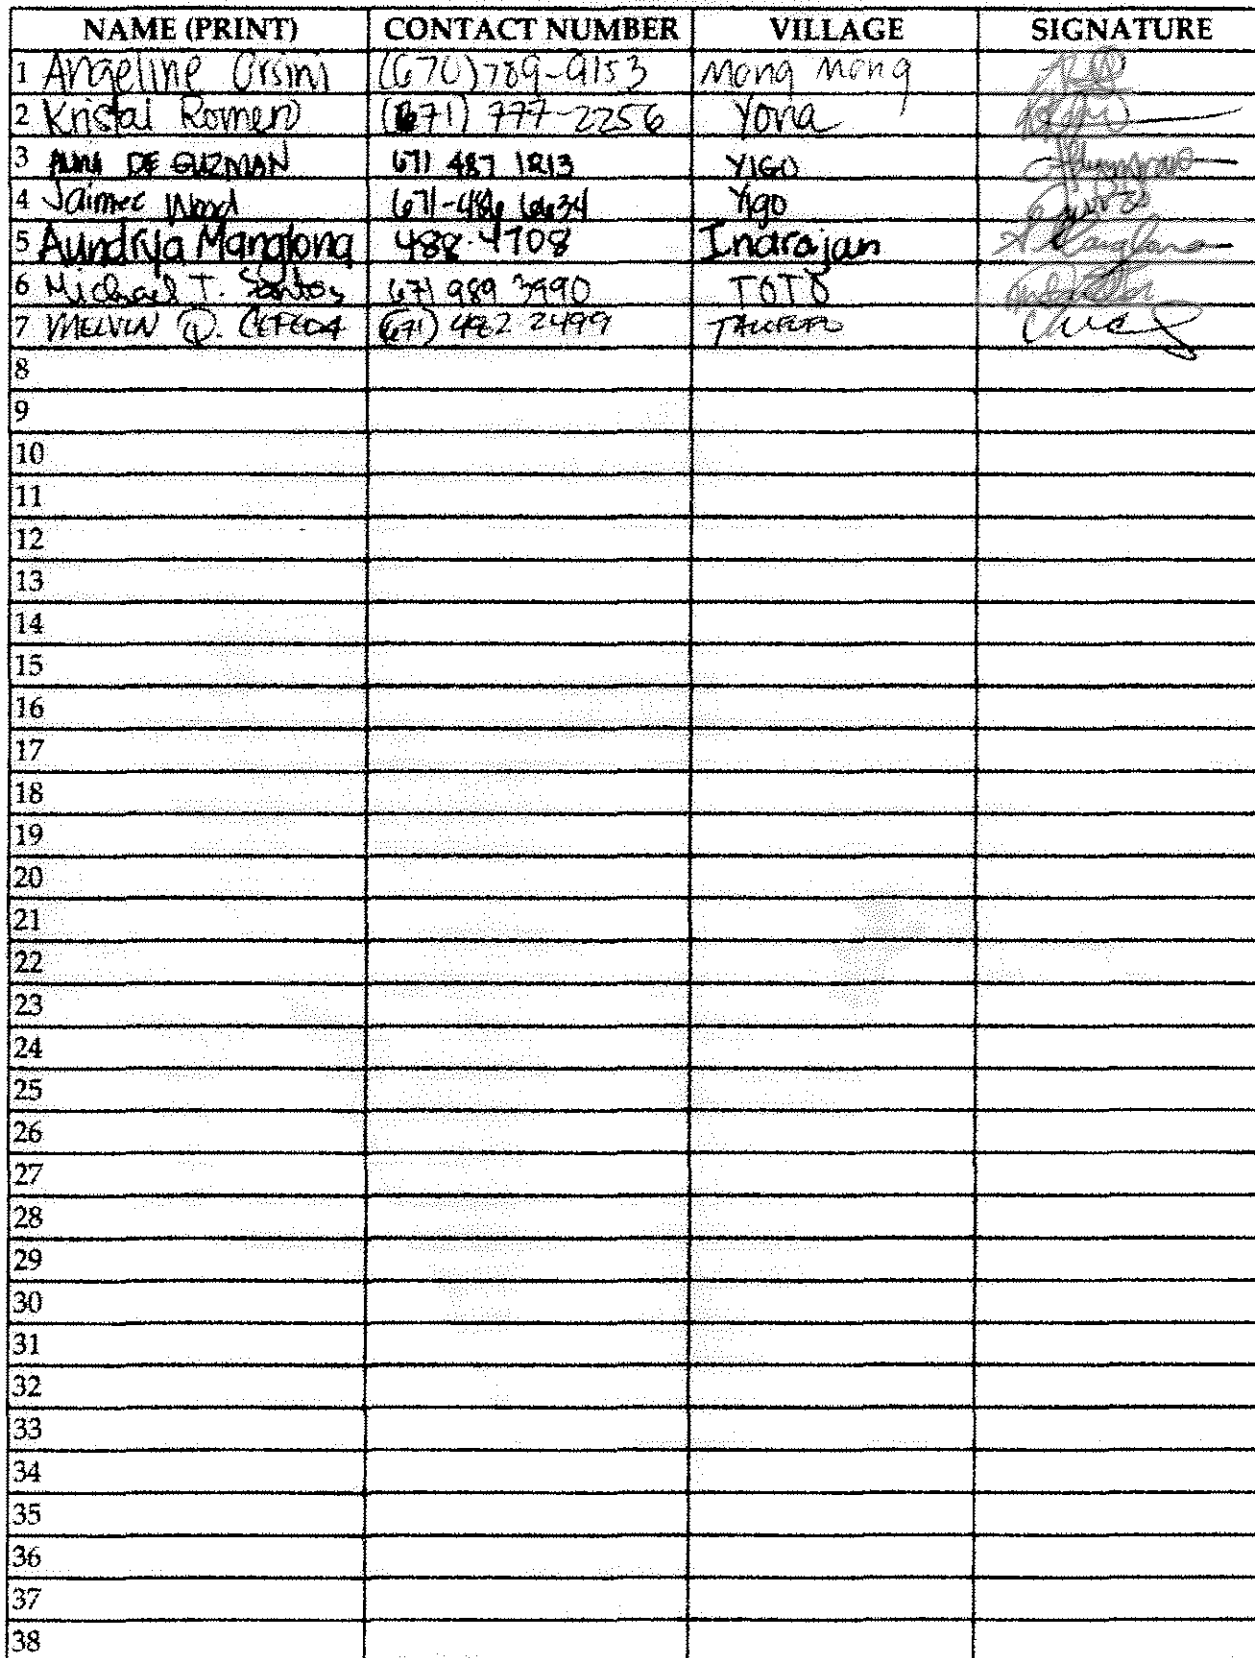 NAME (PRINT) CONTACT NUMBER VILLAGE SIGNATURE
1 Angeline Orsini (670) 789-9153 Mong mong
2 Kristal Romero (671) 777-2256 Yona
3 DE GUZMAN 671 487 1213 YIGO
4 Jaimee Wood 671-486 6634 Yigo
5 Aundrya Manglona 488-4708 Indrajan
6 Michael T. Santos 671 989 3990 TOTO
7 MELVIN Q. CEPEDA (671) 482 2499
8
9
10
11
12
13
14
15
16
17
18
19
20
21
22
23
24
25
26
27
28
29
30
31
32
33
34
35
36
37
38